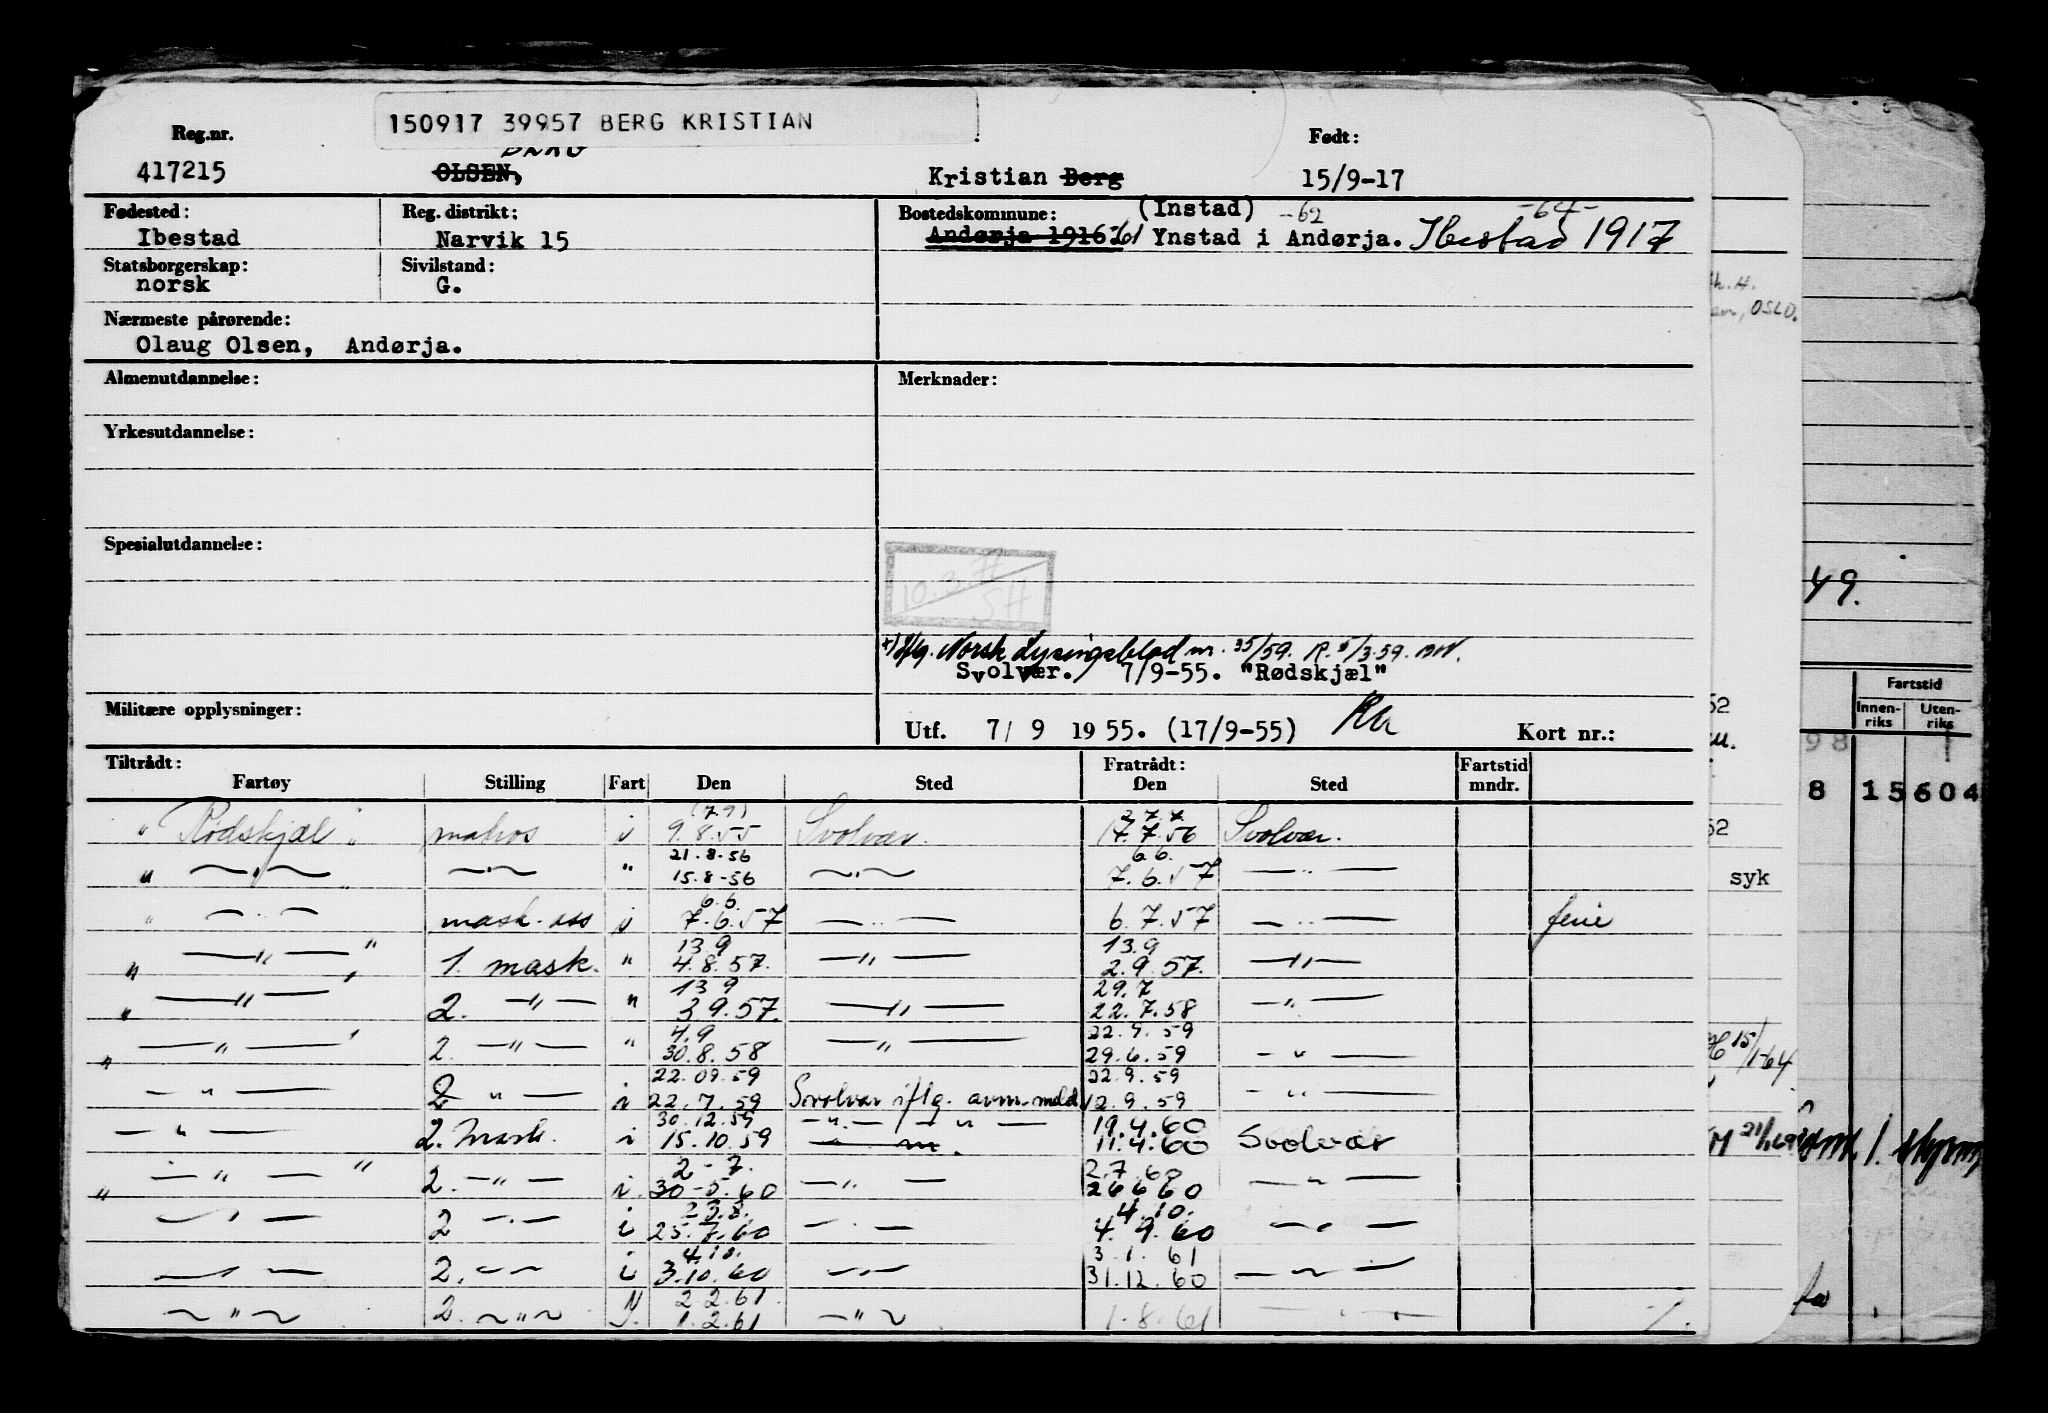 150917 39957 BERG KRISTIAN
Reg.nr. Født:
BERG
417215 OLSEN, Kristian Berg 15/9-17
Fødested: Reg. distrikt: Bostedskommune: (Instad) -62 -64-
Ibestad Narvik 15 Andørja 1916 -61 Ynstad i Andørja. Ibestad 1917
Statsborgerskap: Sivilstand:
norsk G.
Nærmeste pårørende:
Olaug Olsen, Andørja.
Almenutdannelse: Merknader:
Yrkesutdannelse:
Spesialutdannelse:
10.3.
SH
x) Iflg. Norsk Lysingsblad nr. 35/59. R. 5/3.59.
Svolvær. 7/9-55. "Rødskjæl"
Militære opplysninger:
Utf. 7/ 9 19 55. (17/9-55) Kort nr.:
Tiltrådt: Fratrådt: Fartstid
Fartøy Stilling Fart Den Sted Den Sted mndr.
(7.9) 27.7.
" Rødskjæl " matros i 9.8.55 Svolvær. 17.7.56 Svolvær.
21.8-56 6.6.
" — " — — " — " 15.8-56 — " — 7.6.57 — " —
6.6.
" — " — mask. ass i 7.6.57 — " — 6.7.57 — " — ferie
13.9 13.9
" — " — " 1. mask. " 4.8.57. — " — 2.9.57. — " —
13.9 29.7
" — " — 2. — " — " 3.9.57. — " — 22.7.58 — " —
4.9 22.9.59
" — " — 2. — " — " 30.8.58 — " — 29.6.59 — " —
22.09.59 22.9.59
— " — 2 — " — i 22.7.59 Svolvær iflg. avm.meld. 12.9.59 — " —
30.12.59 — " — " — 19.4.60
— " — 2. mask. i 15.10.59 11.4.60 Svolvær
2-7. 2.7.60
" — " — " 2. — " — i. 30-5.60 — " — 26.6.60 — " —
23.8. 4.10.
— " — 2 — " — i 25.7.60 — " — 4.9.60 — " —
4.10. 3.1.61
— " — 2. — " — i 3.10.60 — " — 31.12.60 — " —
2.2.61
— " — 2. — " — 1.2.61 — " — 1.8.61 — " —
OSLO.
49.
Fartstid
Innen-riks Uten-riks
52
98
8 15 604
52
syk
15/1-64